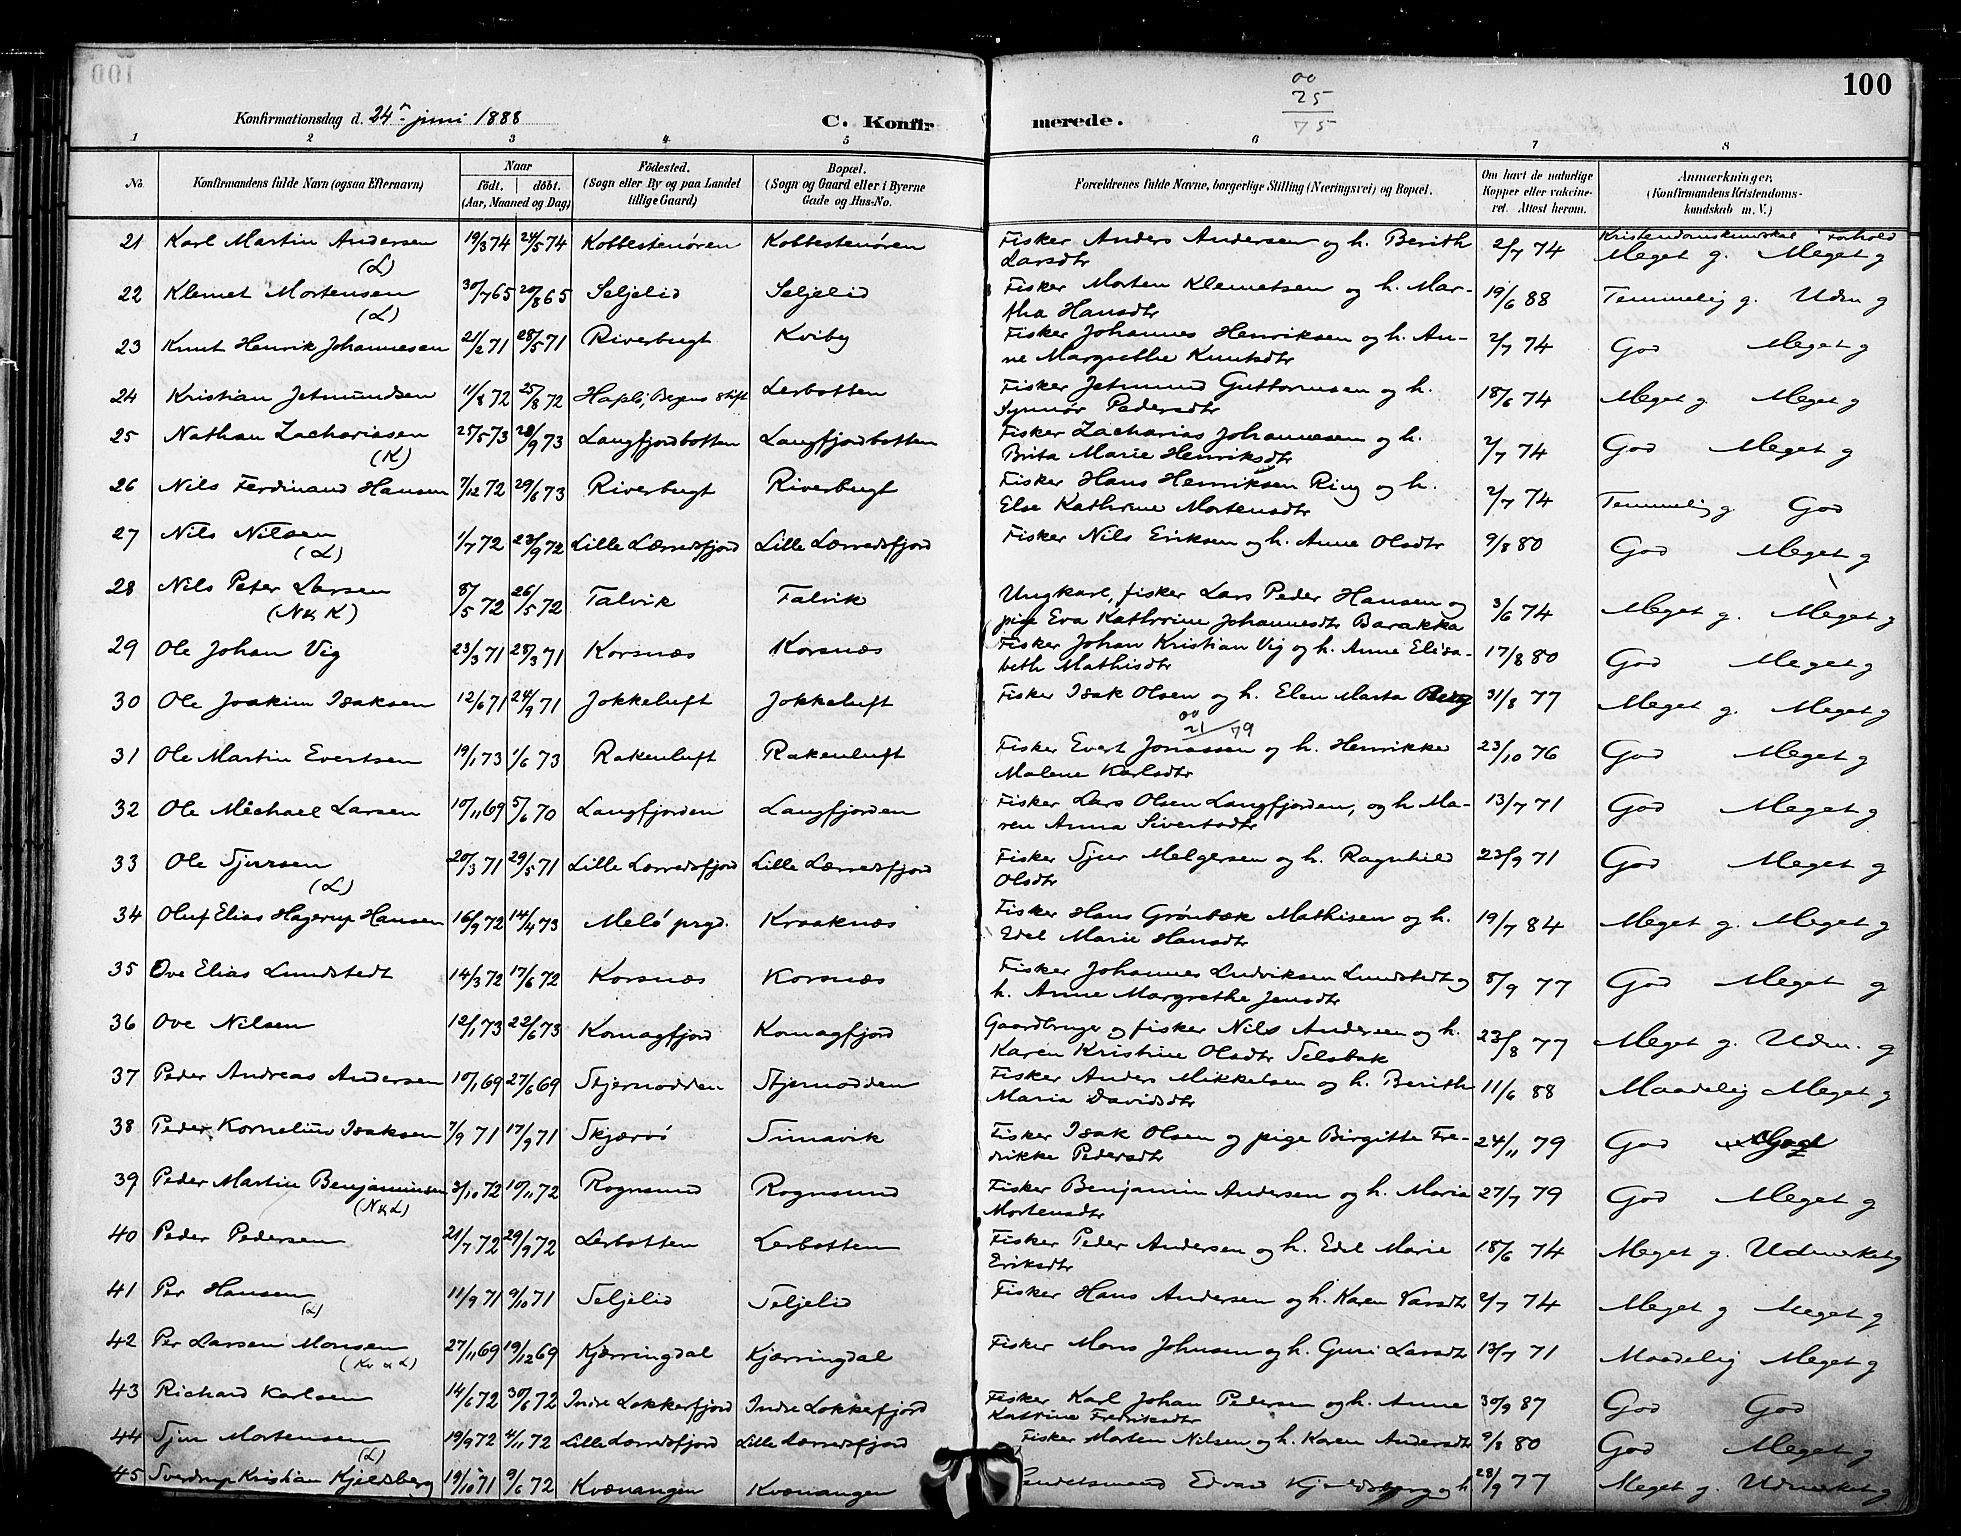 100
00
25
75
Konfirmationsdag d. 24de juni 1888
C. Konfirmerede.
1 2 3 4 5 6 7 8
No. Konfirmandens fulde Navn (ogsaa Efternavn) Naar födt. döbt. (Aar, Maaned og Dag) Födested. (Sogn eller By og paa Landet tillige Gaard) Bopæl. (Sogn og Gaard eller i Byerne Gade og Hus-No. Forældrenes fulde Navne, borgerlige Stilling (Næringsvei) og Bopæl. Om havt de naturlige Kopper eller vakcineret. Attest herom. Anmærkninger, (Konfirmandens Kristendomskundskab m. V.)
Kristendomskundskab Forhold
21 Karl Martin Andersen (L) 19/3 74 24/5 74 Kobbestenören Kobbestenören Fisker Anders Andersen og h. Berith Larsdtr 2/7 74 Meget g. Meget g
22 Klemet Mortensen (L) 30/7 65 20/8 65 Seljelid Seljelid Fisker Morten Klemetsen og h. Martha Hansdtr 19/6 88 Temmelig g. Udm g
23 Knut Henrik Johannesen 21/2 71 28/5 71 Riverbugt Kviby Fisker Johannes Henriksen og h. Anne Margrethe Knutsdtr 2/7 74 God Meget g
24 Kristian Jetmundsen 11/8 72 25/8 72 Bergens stift Lerbotten Fisker Jetmund Guttormsen og h. Synnör Pedersdtr 18/6 74 Meget g Meget g
25 Nathan Zachariasen (K) 25/5 73 28/9 73 Langfjordbotten Langfjordbotten Fisker Zacharias Johannesen og h. Brita Marie Henriksdtr 2/7 74 God Meget g
26 Nils Ferdinand Hansen 7/12 72 29/6 73 Riverbugt Riverbugt Fisker Hans Henriksen Ring og h. Else Kathrine Mortensdtr 2/7 74 Temmelig g. God
27 Nils Nilsen (L) 1/7 72 23/9 72 Lille Lærredsfjord Lille Lærredsfjord Fisker Nils Eriksen og h. Anne Olsdtr 9/8 80 God Meget g
28 Nils Peter Larsen (N & K) 8/5 72 26/5 72 Talvik Talvik Ungkarl, fisker Lars Peder Hansen og pige Eva Kathrine Johannesdtr Barakka 3/6 74 Meget g. Meget g
29 Ole Johan Vig 23/3 71 28/3 71 Korsnæs Korsnæs Fisker Johan Kristian Vig og h. Anne Elisabeth Mathisdtr 17/8 80 God Meget g
30 Ole Joakim Isaksen 12/6 71 24/9 71 Jokkeluft Jokkeluft Fisker Isak Olsen og h. Elen Marta Berg 31/8 77 Meget g. Meget g
00
21/79
31 Ole Martin Evertsen 19/1 73 1/6 73 Rakenluft Rakenluft Fisker Evert Jonassen og h. Henrikke Malene Karlsdtr 23/10 76 God Meget g
32 Ole Michael Larsen 10/11 69 5/6 70 Langfjorden Langfjorden Fisker Lars Olsen Langfjorden, og h Maren Anna Sivertsdtr 13/7 71 God Meget g
33 Ole Sjursen (L) 20/3 71 29/5 71 Lille Lærredsfjord Lille Lærredsfjord Fisker Sjur Melgersen og h. Ragnhild Olsdtr 23/9 71 God Meget g
34 Oluf Elias Hagerup Hansen 16/9 72 14/4 73 Melö prgd. Kraaknæs Fisker Hans Grönbæk Mathisen og h. Edel Marie Hansdtr 19/7 84 Meget g. Meget g
35 Ove Elias Lundstedt 14/3 72 17/6 72 Korsnæs Korsnæs Fisker Johannes Ludviksen Lundstedt og h. Anne Margrethe Jensdtr 8/9 77 God Meget g
36 Ove Nilsen 12/1 73 22/6 73 Komagfjord Komagfjord Gaardbruger og fisker Nils Andersen og h. Karen Kristine Olsdtr Selsbak 23/8 77 Meget g. Udm. g
37 Peder Andreas Andersen 10/1 69 27/6 69 Stjernodden Stjernodden Fisker Anders Mikkelsen og h. Berith Maria Davidsdtr 11/6 88 Maadelig Meget g
38 Peder Kornelius Isaksen 7/9 71 17/9 71 Skjærvö Simavik Fisker Isak Olsen og pige Birgitte Fredrikke Pedersdtr 24/11 79 God God
39 Peder Martin Benjaminsen (N & L) 3/10 72 10/11 72 Rognsund Rognsund Fisker Benjamin Andersen og h. Maria Mortensdtr 27/7 79 God Meget g
40 Peder Pedersen 21/7 72 29/9 72 Lerbotten Lerbotten Fisker Peder Andersen og h. Edel Marie Eriksdtr 18/6 74 Meget g. Udmerket g
41 Per Hansen (L) 11/9 71 9/10 71 Seljelid Seljelid Fisker Hans Andersen og h. Karen Larsdtr 2/7 74 Meget g Meget g
42 Per Larsen Monsen (Kv & L) 27/11 69 19/12 69 Kjærringdal Kjærringdal Fisker Mons Johnsen og h. Guri Larsdtr 13/7 71 Maadelig Meget g
43 Richard Karlsen 14/6 72 30/6 72 Indre Lokkerfjord Indre Lokkefjord Fisker Karl Johan Pedersen og h. Anne Katrine Fredriksdtr 30/9 87 God God
44 Sjur Mortensen (L) 19/9 72 4/11 72 Lille Lærredsfjord Lille Lærredsfjord Fisker Morten Nilsen og h. Karen Andersdtr 9/8 80 God Meget g
45 Sverdrup Kristian Kjeldsberg 19/10 71 9/6 72 Kvænangen Kvænangen Edvard Kjeldsberg og h 28/9 77 Meget g. Udmerket g